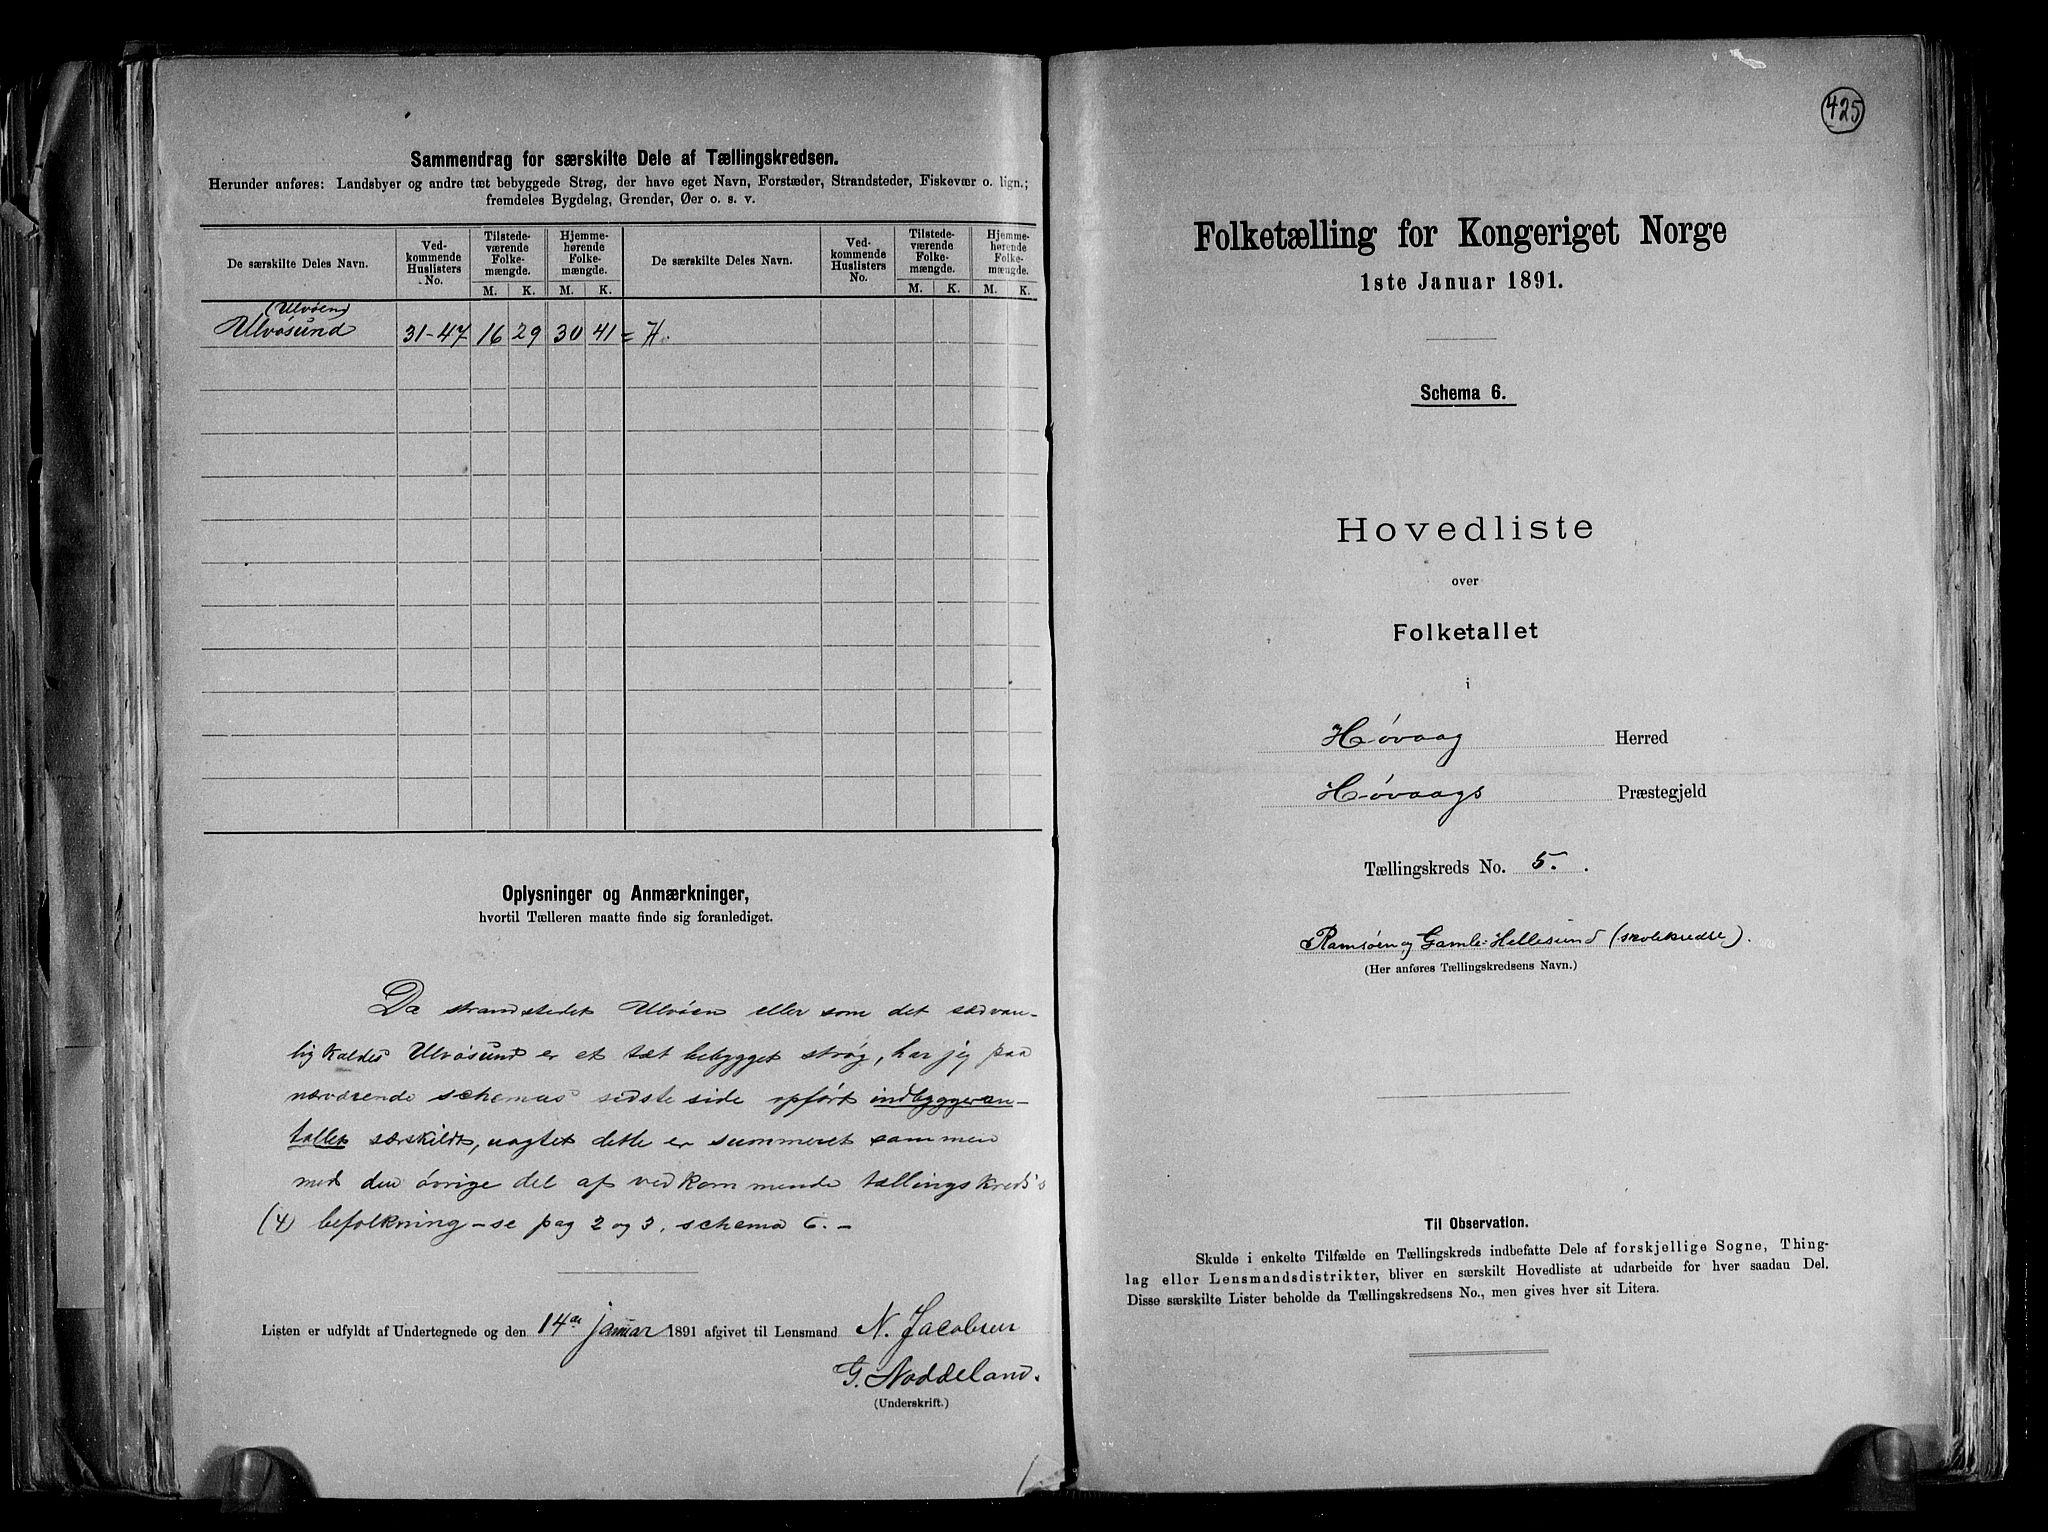 Sammendrag for særskilte Dele af Tællingskredsen.
Herunder anføres: Landsbyer og andre tæt bebyggede Strøg, der have eget Navn, Forstæder, Strandsteder, Fiskevær o. lign.;
fremdeles Bygdelag, Grender, Øer o. s. v.
De særskilte Deles Navn.
Ved-
kommende
Huslisters
No.
Tilstede-
værende
Folke-
mængde.
M. K.
Hjemme-
hørende
Folke-
mængde.
M. K.
De særskilte Deles Navn.
Ved-
kommende
Huslisters
No.
Tilstede-
værende
Folke-
mængde.
M. K.
Hjemme-
hørende
Folke-
mængde.
M. K.
(Ulvøen)
Ulvøsund 31-47 16 29 30 41 = H.
Oplysninger og Anmærkninger,
hvortil Tælleren maatte finde sig foranlediget.
Da strandstedet Ulvøen eller som det sædvan-
lig kaldes Ulvøsund er et tæt bebygget strøg, har jeg paa
nærværende schemas sidste side opført indbyggeran-
tallet særskildt, uagtet dette er summeret sammen
med den øvrige del af vedkommende tællingskreds's
(4) befolkning - se pag 2 og 3, schema 6. -
Listen er udfyldt af Undertegnede og den 14de januar 1891 afgivet til Lensmand N. Jacobsen
G. Noddeland.
(Underskrift.)
425
Folketælling for Kongeriget Norge
1ste Januar 1891.
Schema 6.
Hovedliste
over
Folketallet
i
Høvaag Herred
Høvaags Præstegjeld
Tællingskreds No. 5.
Ramsøen og Gamle-Hellesund (skolekredse).
(Her anføres Tællingskredsens Navn.)
Til Observation.
Skulde i enkelte Tilfælde en Tællingskreds indbefatte Dele af forskjellige Sogne, Thing-
lag eller Lensmandsdistrikter, bliver en særskilt Hovedliste at udarbeide for hver saadan Del.
Disse særskilte Lister beholde da Tællingskredsens No., men gives hver sit Litera.